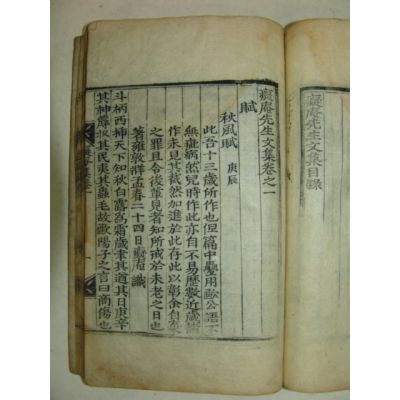 癡庵先生文集目錄
癡庵先生文集卷之一
賦
秋風賦 庚辰
此吾十三歲所作也但篇中用歐公語不
無疵病然兒時作此亦自不易歷數近歲
作未見其截然加進於此存此以彰余自棄
之罪且令後輩見者知所戒於未老之日也
著雍敦牂孟春二十四日識
斗柄西揷天下知秋白露爲霜歲聿其遒其日庚辛
其神蓐收其民夷其蟲毛故歐陽子之言曰商傷也